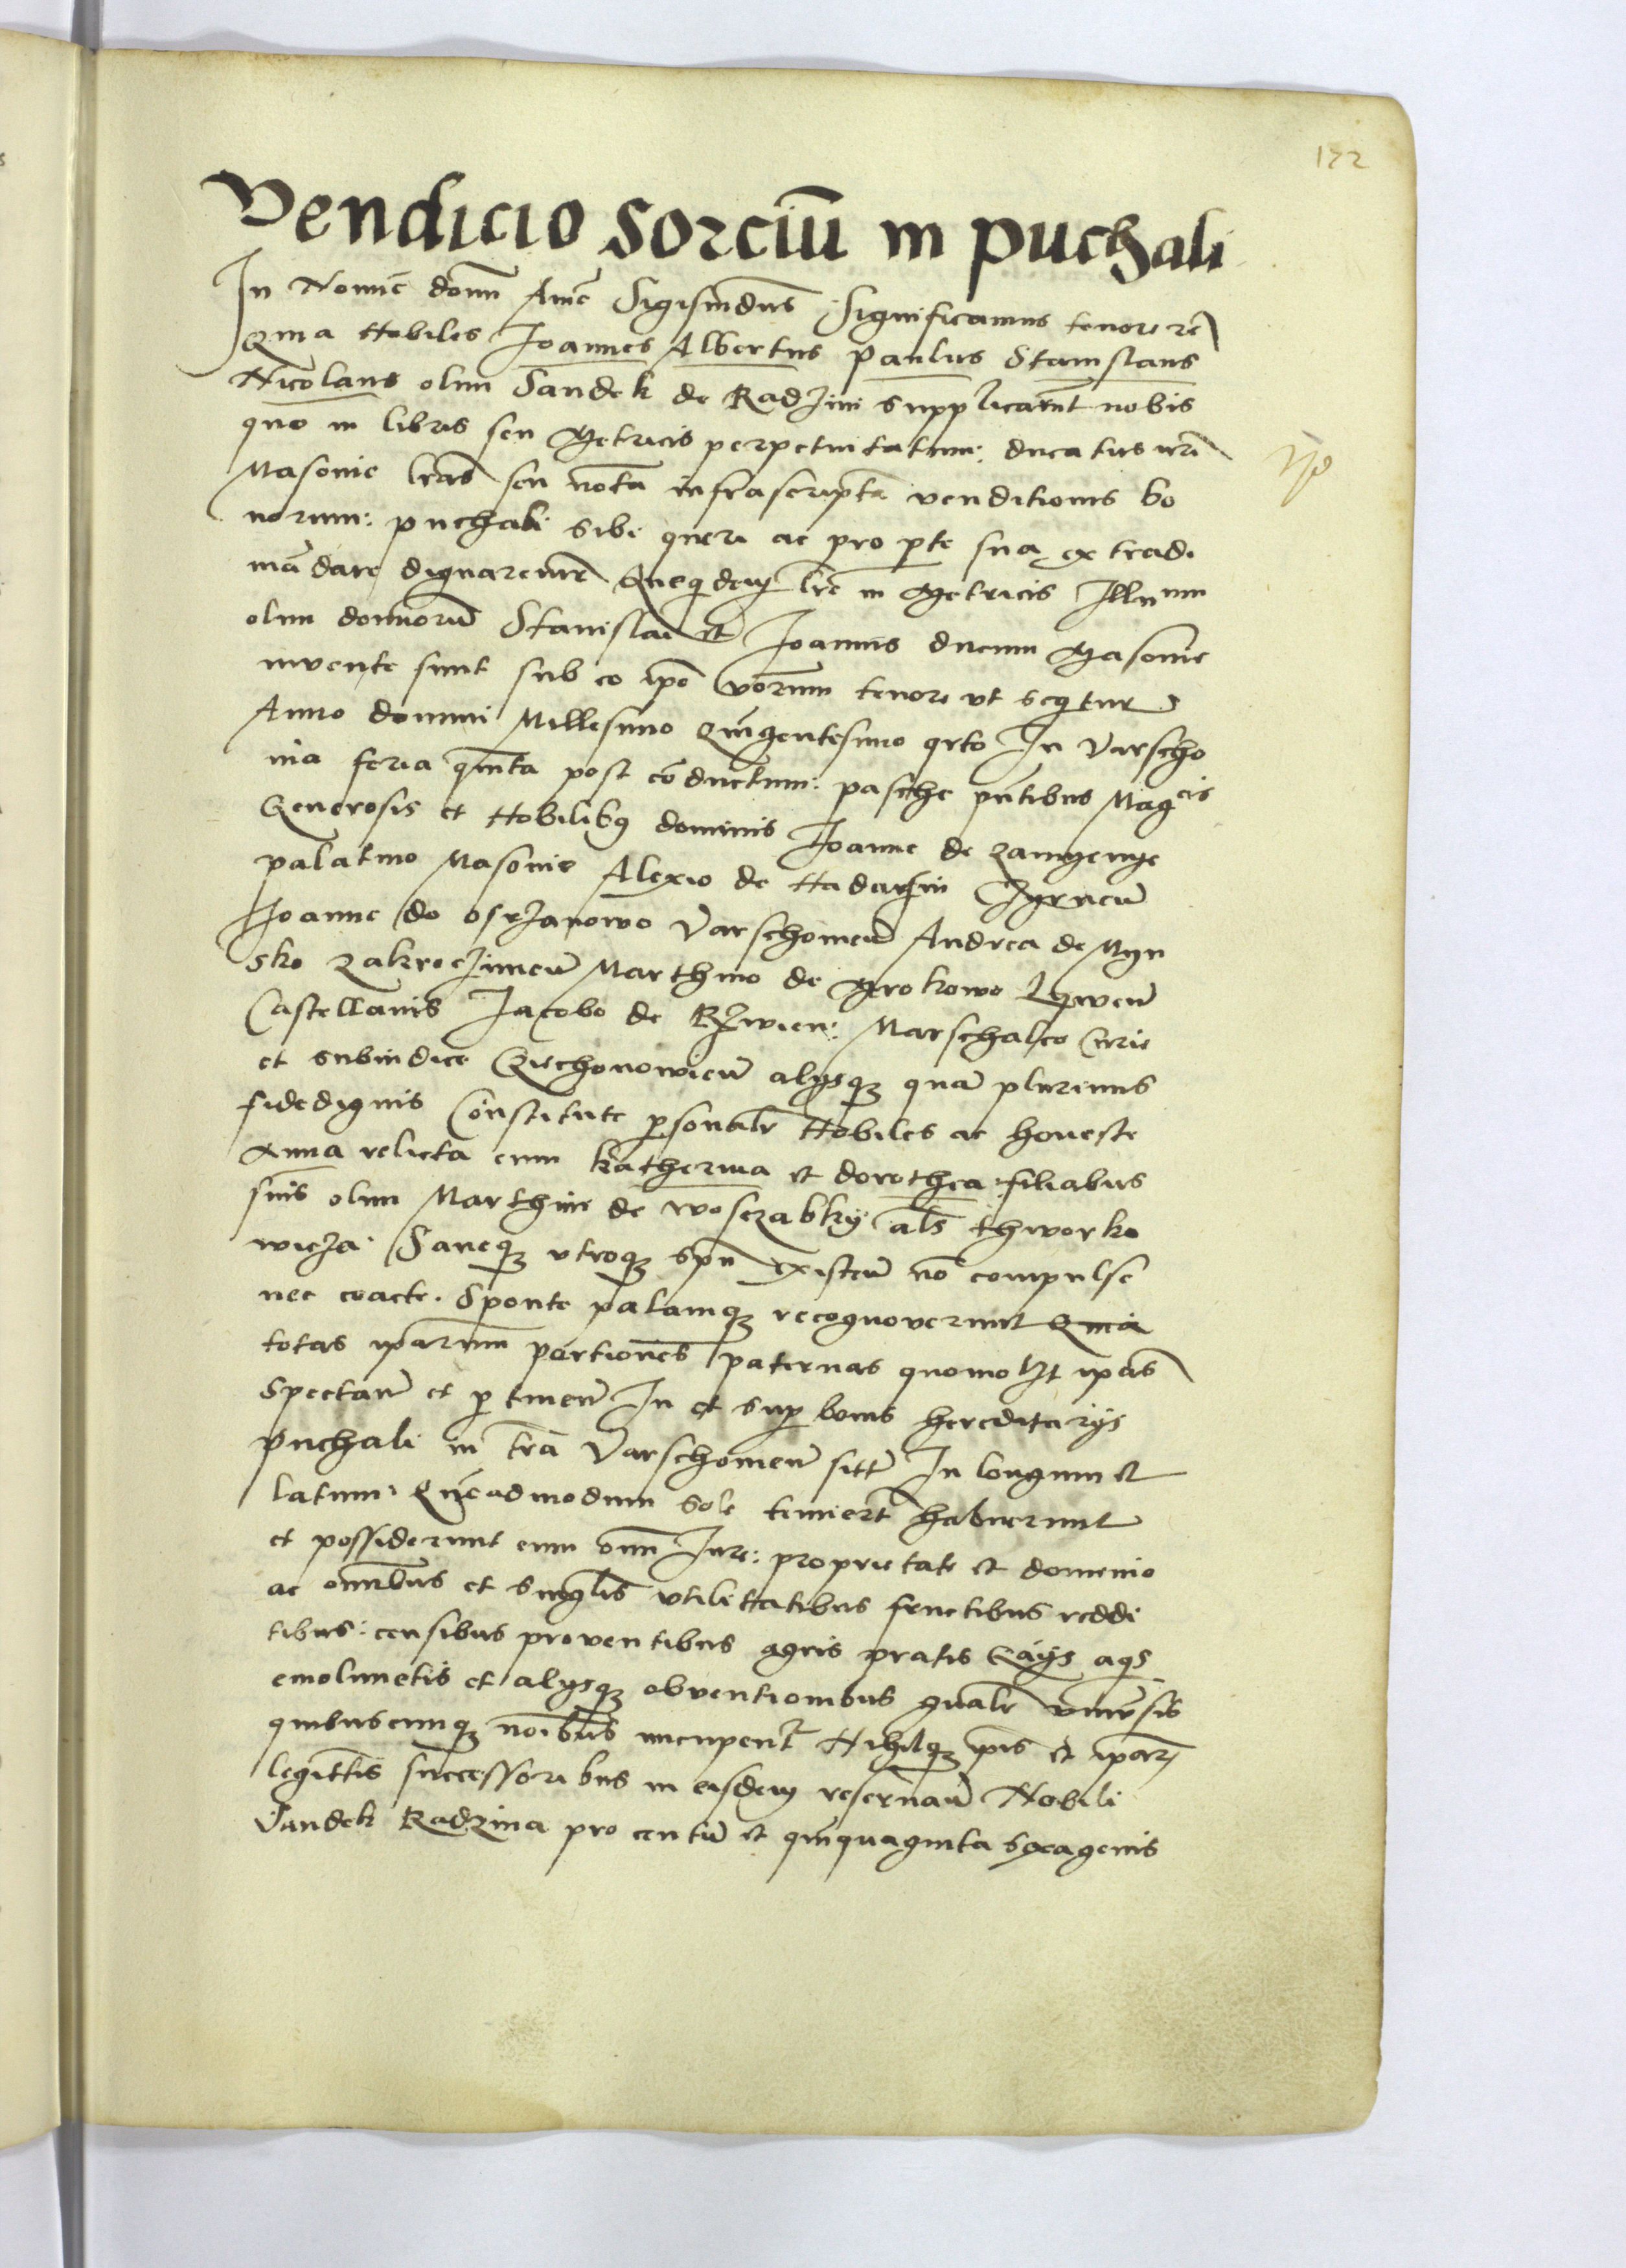 172
Vendicio sorciũ in puchali
In Nomie domi Ame Sigismdus Significamus tenore re
Quia Nobiles Joannes Albertus Paulus Stanislaus
Nicolaus olim Sandek de Radzini supplicarut nobis
quo in libris seu Metricis perpetuitatum: ducatus nri
Masouie lras seu nota infrascripta venditionis bo
norum: puchali sibi queri ac pro pte sua ex tradi
mādare dignaremr Quequidem lre in Metricis Illmum
olim domorū Stanislai et Joannis ducum Masouie
inuente sunt sub eo ipo verum tenore vt seqitur
Anno domini Millesimo Quingentesimo qrto In Varscho
uia feria quinta post cōductum: pasche pntibus Magcis
Generosis et Nobilibus dominis Joanne de zamyenye
palatino Masouie Alexio de Nadarzin Czyrneñ
Joanne de osszanowo Varschouieñ Andrea de Myn
sko zakroczimeñ Marthino de Grokowo Lyweñ
Castellanis Jacobo de Rzwien: Marschalco Curie
et subiudice Cziechonowieñ alysqꝫ quā plurimis
fidedignis Constitute psonalr Nobiles ac honeste
Anna relicta cum katherina et dorothea filiabus
suis olim Marthini de wosczabky als thworko
wicza. Saneqꝫ vtroqꝫ spu Existeñ nō compulse
nec coacte. Sponte palamqꝫ recognouerunt Quia
totas iparum portiones paternas quomolzt ipas
spectañ et ptineñ In et sup bonis hereditarys
Puchali in tra Varschouieñ sitt In longum et
latum. Quēadmodum sole tenuert habuerunt
et possiderunt cum omi Jure: proprietate et domenio
ac omibus et singlis vtilitatibus fructibus reddi
tibus: censibus prouentibus agris pratis Gays aqis
emolumētis et alysqꝫ obuentionibus gualr vniuersis
quibuscumqꝫ noibus nuncupent Nihilqꝫ ipis et ipar
legittis successoribus in eisdem reseruañ Nobili
Sandek Radzina pro centū et quinquaginta sexagenis